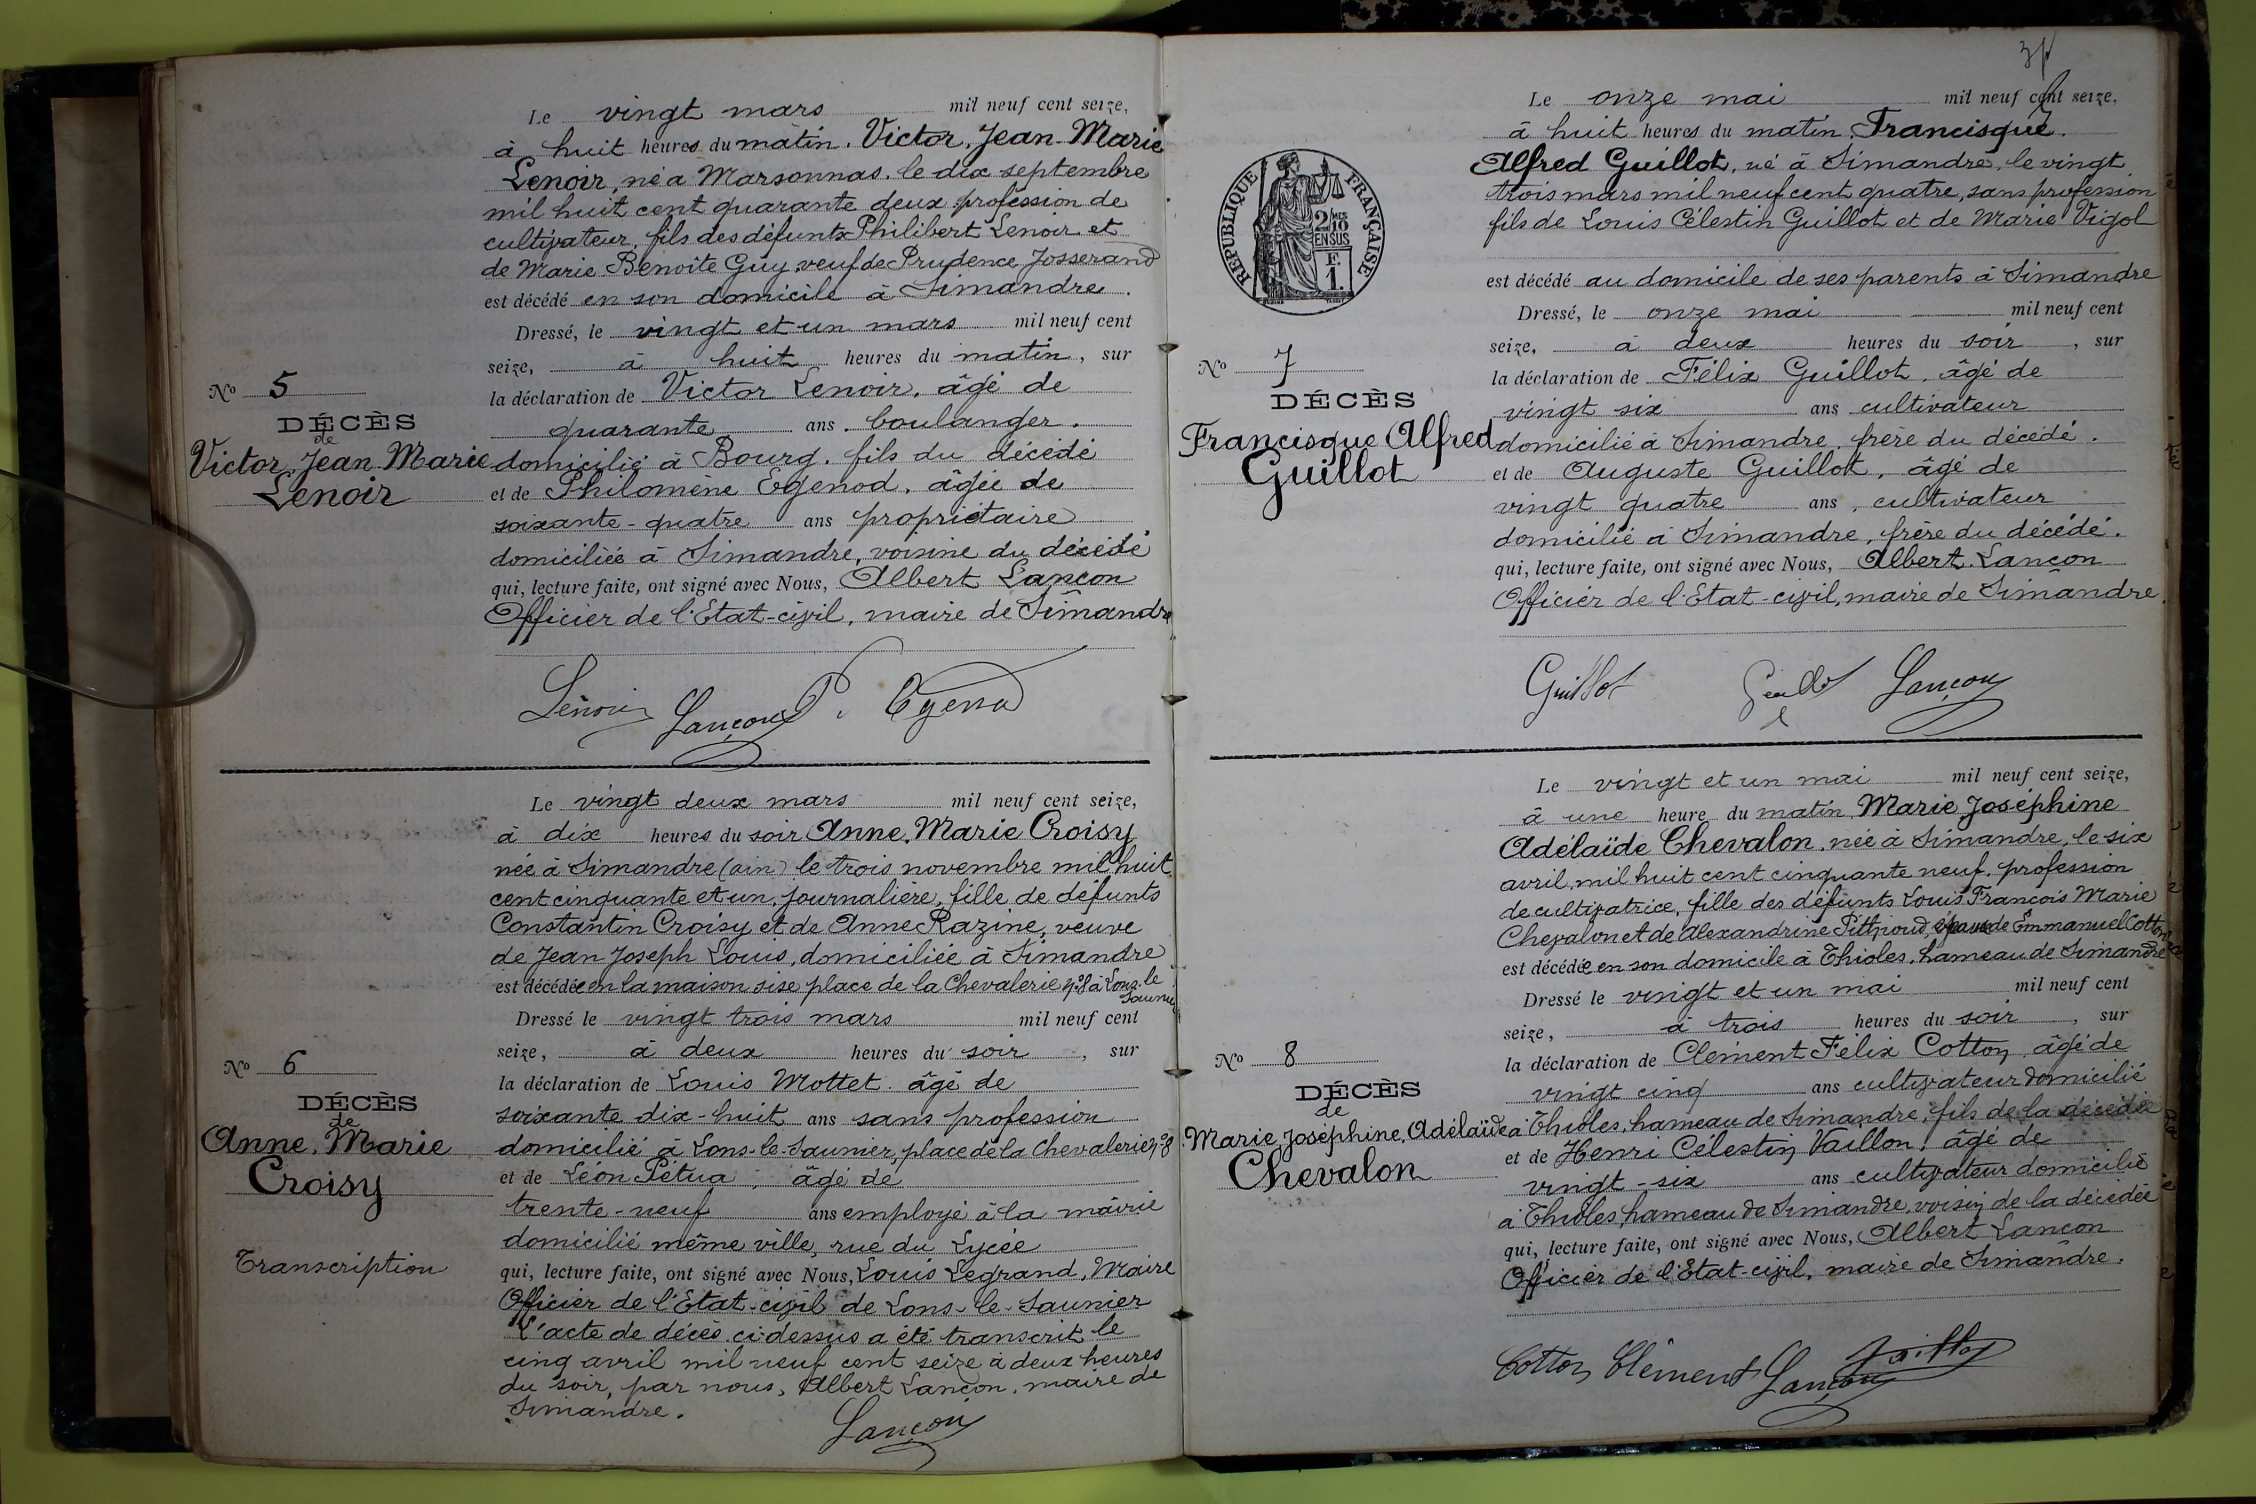 Le vingt mars mil neuf cent seize,
à huit heures du matin. Victor, Jean-Marie
Lenoir, né à Marsonnas. le dix septembre
mil huit cent quarante deux profession de
cultivateur, fils des défunts Philibert Lenoir et
de Marie Benoîte Guy, veuf de Prudence Josserand
est décédé en son domicile à Simandre.
Dressé, le vingt et un mars mil neuf cent
seize, à huit heures du matin, sur
No 5
la déclaration de Victor Lenoir, âgé de
DÉCÈS
quarante ans. boulanger.
de
Victor, Jean Marie
domicilié à Bourg. fils du décédé
Lenoir
et de Philomène Egenod, âgée de
soixante-quatre ans propriétaire
domiciliée à Simandre, voisine du décédé
qui, lecture faite, ont signé avec Nous, Albert Lançon
Officier de l'Etat-civil, maire de Simandre
Lenoir Lançon P. Egenod
Le vingt deux mars mil neuf cent seize,
à dix heures du soir Anne, Marie Croisy
née à Simandre (ain) le trois novembre mil huit
cent cinquante et un, journalière, fille de défunts
Constantin Croisy et de Anne Razine, veuve
de Jean Joseph Louis, domiciliée à Simandre
est décédée en la maison sise place de la Chevalerie n°8 à Lons-le
Saunier
Dressé le vingt trois mars mil neuf cent
seize, à deux heures du soir, sur
No 6
la déclaration de Louis Mottet. âgé de
DÉCÈS
soixante dix-huit ans sans profession
de
Anne, Marie
domicilié à Lons-le-Saunier, place de la Chevalerie n°8
Croisy
et de Léon Pétua, âgé de
trente-neuf ans employé à la mairie
domicilié même ville, rue du Lycée
Transcription
qui, lecture faite, ont signé avec Nous, Louis Legrand, Maire
Officier de l'Etat-civil de Lons-le-Saunier
L'acte de décès ci-dessus a été transcrit le
cinq avril mil neuf cent seize à deux heures
du soir, par nous, Albert Lançon, maire de
Simandre.
Lançon
Le onze mai mil neuf cent seize,
à huit heures du matin, Francisque
Alfred Guillot, né à Simandre, le vingt
trois mars mil neuf cent quatre, sans profession
fils de Louis Célestin Guillot et de Marie Vigol
RÉPUBLIQUE FRANÇAISE
2/10 MES
EN SUS
F.
1.
est décédé au domicile de ses parents à Simandre
Dressé, le onze mai mil neuf cent
seize, à deux heures du soir, sur
No 7
la déclaration de Félix Guillot, âgé de
DÉCÈS
vingt six ans cultivateur
Francisque Alfred
domicilié à Simandre, frère du décédé.
Guillot
et de Auguste Guillot, âgé de
vingt quatre ans, cultivateur
domicilié à Simandre, frère du décédé.
qui, lecture faite, ont signé avec Nous, Albert Lançon
Officier de l'Etat-civil, maire de Simandre.
Guillot Guillot Lançon
Le vingt et un mai mil neuf cent seize,
à une heure du matin Marie, Joséphine
Adélaïde Chevalon, née à Simandre, le six
avril mil huit cent cinquante neuf, profession
de cultivatrice, fille des défunts Louis François Marie
Chevalon et de Alexandrine Pithioud, épouse de Emmanuel Cotton
est décédée en son domicile à Thioles, hameau de Simandre
Dressé le vingt et un mai mil neuf cent
seize, à trois heures du soir, sur
No 8
la déclaration de Clément Félix Cotton, âgé de
DÉCÈS
vingt cinq ans cultivateur domicilié
de
Marie, Joséphine, Adélaïde
à Thioles, hameau de Simandre, fils de la décédée
Chevalon
et de Henri Célestin Vaillon, âgé de
vingt-six ans cultivateur domicilié
à Thioles, hameau de Simandre, voisin de la décédée
qui, lecture faite, ont signé avec Nous, Albert Lançon
Officier de l'Etat-civil, maire de Simandre.
Cotton Clément Lançon Vaillon